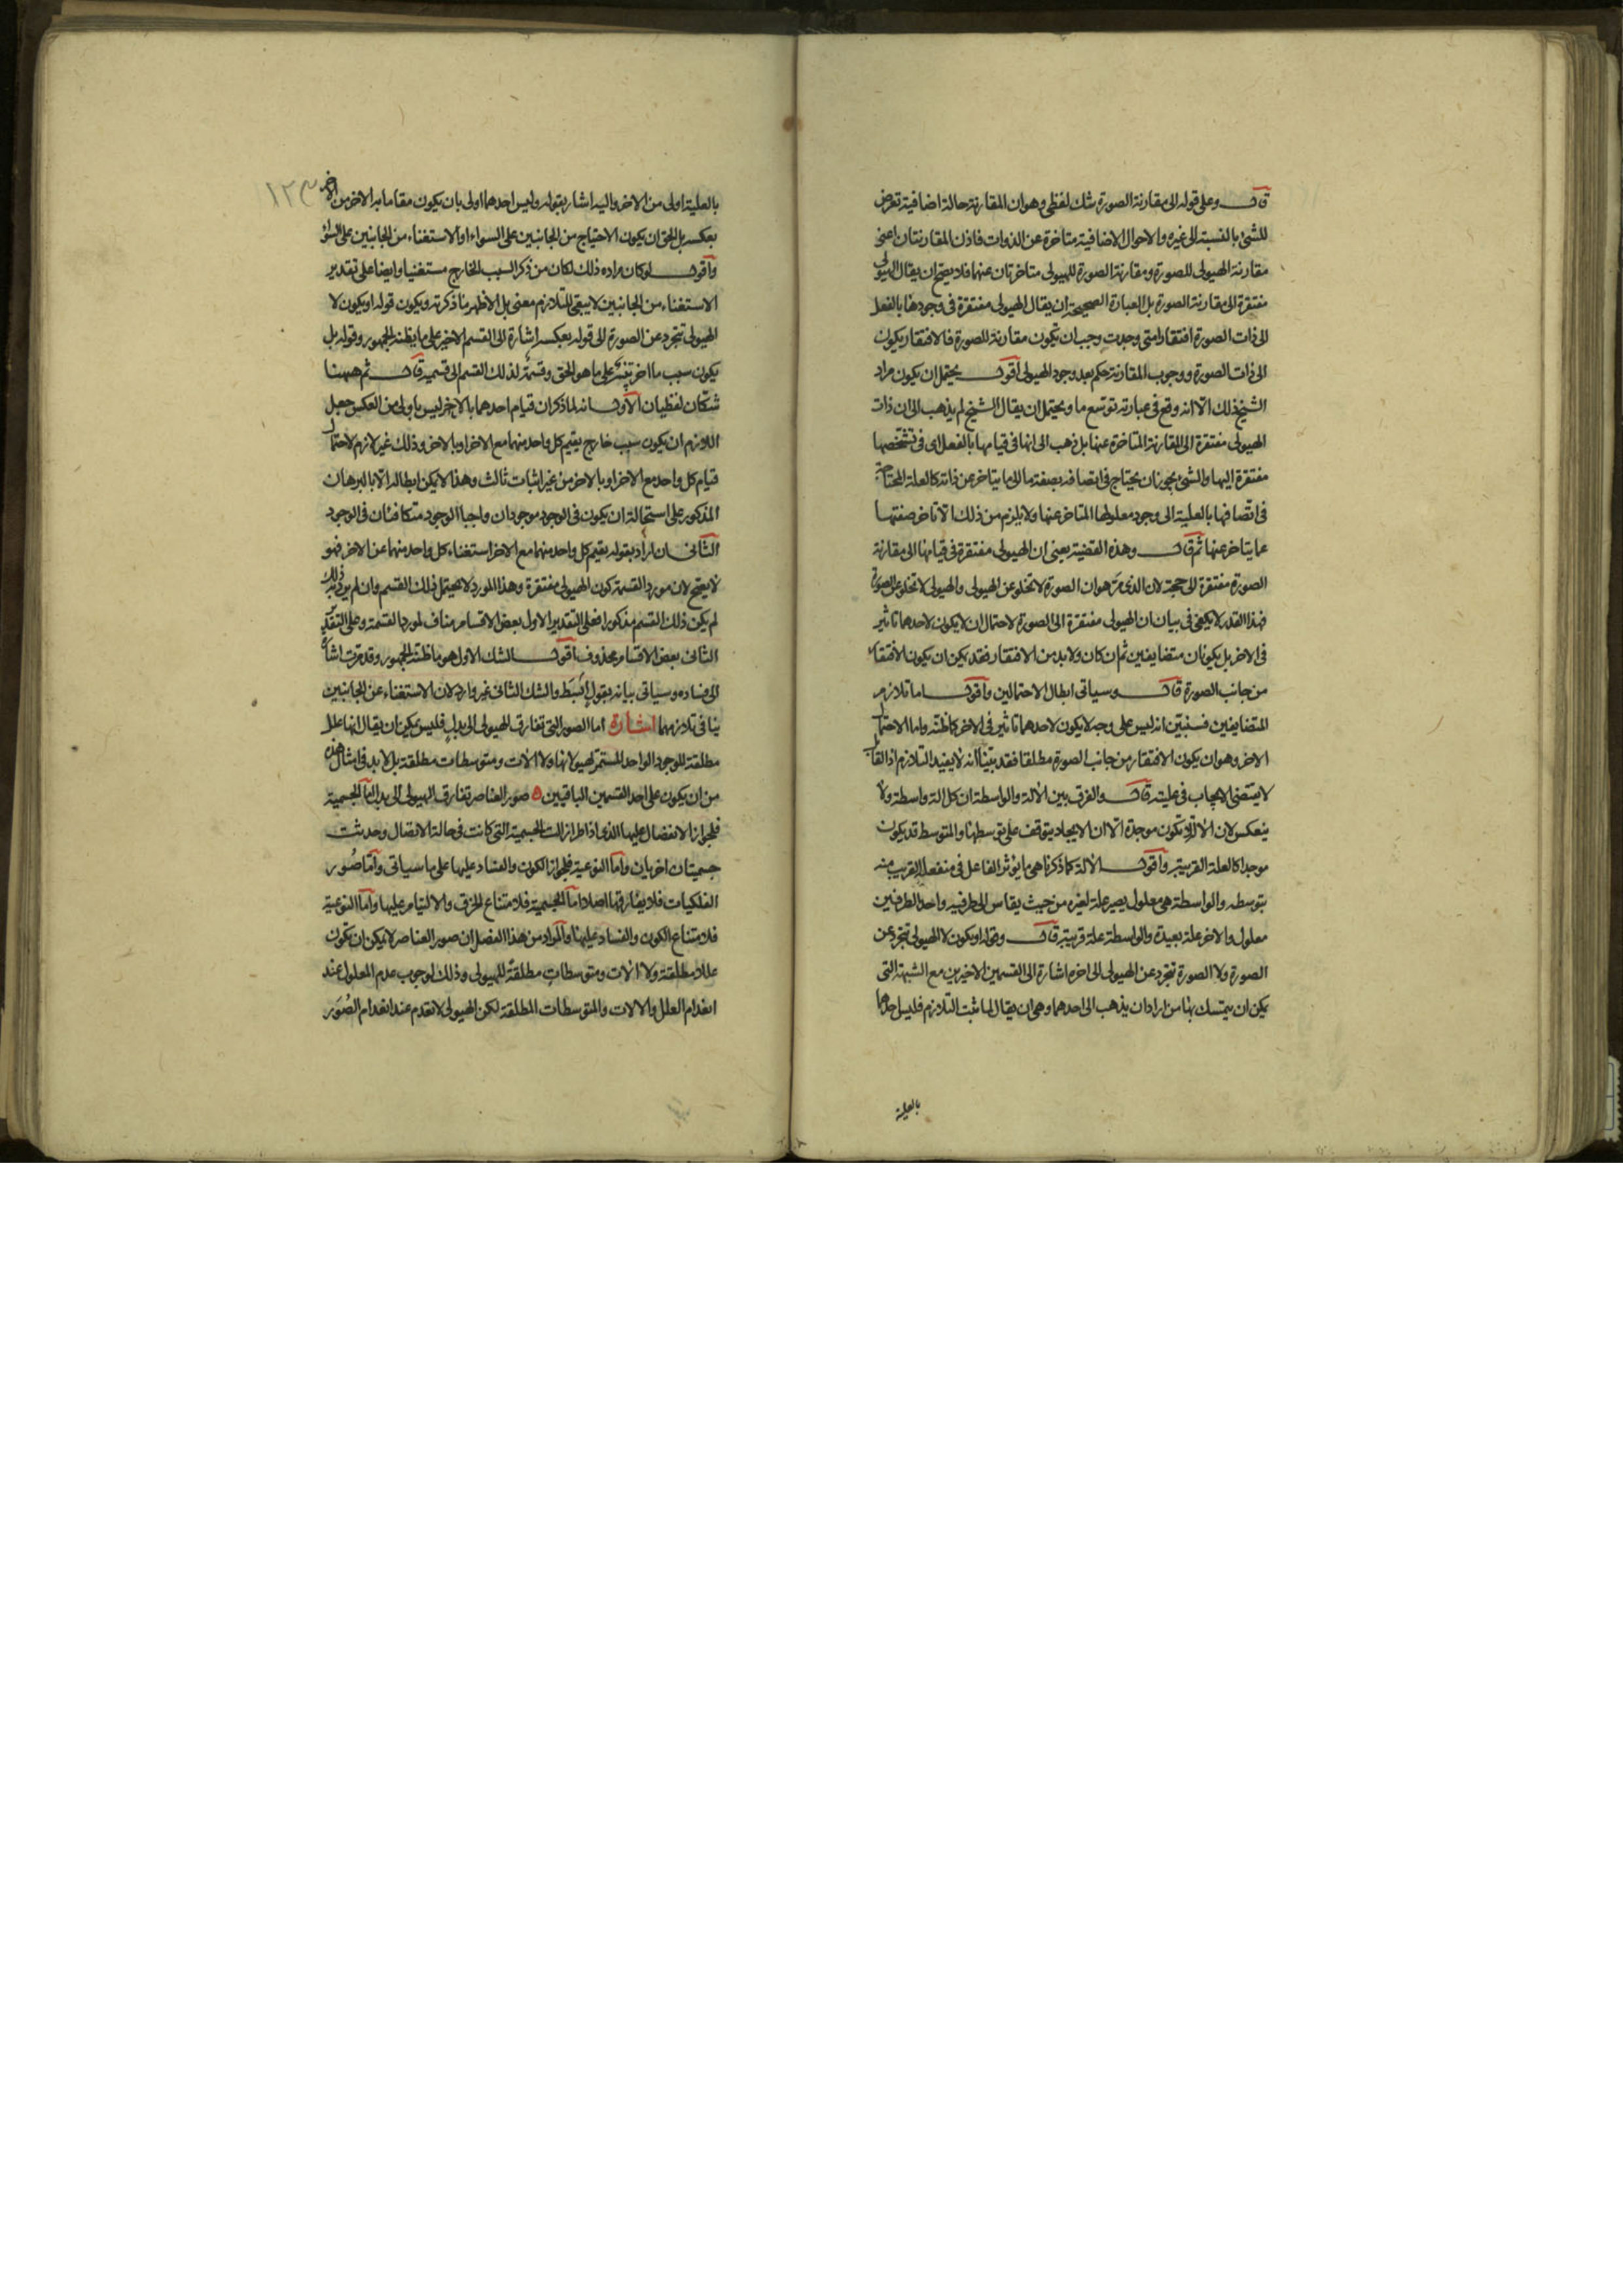 قال وعلى قوله الى مقارنة الصورة شك لفظى وهو ان المقارنة حالة اضافية تعرض
للشئ بالنسبة الى غيره والاحوال الاضافية متاخرة عن الذوات فاذن المقارنتان اعنى
مقارنة الهيولى للصورة ومقارنة الصورة للهيولى متاخرتان عنهما فلا يصح ان يقال الهيولى
مفتقرة الى مقارنة الصورة بل العبارة الصحيحة ان يقال الهيولى مفتقرة فى وجودها بالفعل
الى ذات الصورة افتقارا متى وجدت وجب ان تكون مقارنة للصورة فالافتقار يكون
الى ذات الصورة ووجوب المقارنة حكم بعد وجود الهيولى اقول يحتمل ان يكون مراد
الشيخ ذلك الا انه وقع فى عبارته توسع ما ويحتمل ان يقال الشيخ لم يذهب الى ان ذات
الهيولى مفتقرة الى المقارنة المتاخرة عنها بل ذهب الى انها فى قيامها بالفعل اى فى تشخصها
مفتقرة اليها والشئ يجوز ان يحتاج فى اتصافه بصفة ما الى ما يتاخر عن ذاته كالعلة المحتاجة
فى اتصافها بالعلية الى وجود معلولها المتاخر عنها ولا يلزم من ذلك الا تاخر صفتها
عما يتاخر عنها ثم قال وهذه القضية يعنى ان الهيولى مفتقرة فى قيامها الى مقارنة
الصورة مفتقرة الى حجة لان الذى مر هو ان الصورة لا تخلو عن الهيولى والهيولى لا تخلو عن الصورة
فهذا القدر لا يكفى فى بيان ان الهيولى مفتقرة الى الصورة لاحتمال ان لا يكون لاحدهما تاثير
فى الاخر بل يكونان متضايفين ثم ان كان ولا بد من الافتقار فقد يمكن ان يكون الافتقار
من جانب الصورة قال وسياتى ابطال الاحتمالين واقول اما تلازم
المتضايفين فسنبين انه ليس على وجه لا يكون لاحدهما تاثير فى الاخر كما ظنه واما الاحتمال
الاخر وهو ان يكون الافتقار من جانب الصورة مطلقا فقد بينا انه لا يفيد التلازم اذ القابل
لا يقتضى الايجاب فى علية قال والفرق بين الالة والواسطة ان كل الة واسطة ولا
ينعكس لان الالة لا تكون موجدة الا ان الايجاد يتوقف على توسطها والمتوسط قد يكون
موجدا كالعلة القريبة واقول الالة كما ذكرنا هى ما يؤثر الفاعل فى منفعله القريب منه
بتوسطه والواسطة هى معلول يصير علة لغيره من حيث يقاس الى طرفيه واحد الطرفين
معلول والاخر علة بعيدة والواسطة علة قريبة قال وقوله او يكون لا الهيولى تتجرد عن
الصورة ولا الصورة تتجرد عن الهيولى الى اخره اشارة الى القسمين الاخيرين مع الشبهة التى
يمكن ان يتمسك بها من اراد ان يذهب الى احدهما وهى ان يقال لما ثبت التلازم فليس احدهما
بالعلية
١٢٣
بالعلية اولى من الاخر واليه اشار بقوله وليس احدهما اولى بان يكون مقاما به الاخر من الاخر
بعكسه بل الحق ان يكون الاحتياج من الجانبين على السواء او الاستغناء من الجانبين على السواء
واقول لو كان مراده ذلك لكان من ذكر السبب الخارج مستغنيا وايضا على تقدير
الاستغناء من الجانبين لا يبقى للتلازم معنى بل الاظهر ما ذكرته ويكون قوله او يكون لا
الهيولى تتجرد عن الصورة الى قوله بعكسه اشارة الى القسم الاخير على ما يظنه الجمهور وقوله بل
يكون سبب ما اخر تنبيه على ما هو الحق وقسمة لذلك القسم الى قسميه قال ثم ههنا
شكان لفظيان الاول انه لما ذكر ان قيام احدهما بالاخر ليس باولى من العكس جعل
اللازم ان يكون سبب خارج يقيم كل واحد منهما مع الاخر او بالاخر وذلك غير لازم لاحتمال
قيام كل واحد مع الاخر او بالاخر من غير اثبات ثالث وهذا لا يمكن ابطاله الا بالبرهان
المذكور على استحالة ان يكون فى الوجود موجودان واجبا الوجود متكافئان فى الوجود
الثانى ان اراد بقوله يقيم كل واحد منهما مع الاخر استغناء كل واحد منهما عن الاخر فهو
لا يصح لان مورد القسمة كون الهيولى مفتقرة وهذا المورد لا يحتمل ذلك القسم وان لم يرد به ذلك
لم يكن ذلك القسم مذكورا فعلى التقدير الاول بعض الاقسام مناف لمورد القسمة وعلى التقدير
الثانى بعض الاقسام محذوف اقول الشك الاول هو ما ظنه الجمهور وقد مرت اشارة
الى فساده وسياتى بيانه بقول ابسط والشك الثانى غير وارد لان الاستغناء عن الجانبين
ينافى تلازمهما اشارة اما الصور التى تفارق الهيولى الى بدل فليس يمكن ان يقال انها علل
مطلقة للوجود الواحد المستمر لهيولاتها ولا الات ومتوسطات مطلقة بل لا بد فى امثال هذه
من ان يكون على احد القسمين الباقيين صور العناصر تفارق الهيولى الى بدل اما الجسمية
فلجواز الانفصال عليها الذى اذا طرا زالت الجسمية التى كانت فى حالة الاتصال وحدثت
جسميتان اخريان واما النوعية فلجواز الكون والفساد عليها على ما سياتى واما صور
الفلكيات فلا يفارقها اصلا اما الجسمية فلامتناع الخرق والالتيام عليها واما النوعية
فلامتناع الكون والفساد عليها والمراد من هذا الفصل ان صور العناصر لا يمكن ان تكون
عللا مطلقة ولا الات ومتوسطات مطلقة للهيولى وذلك لوجوب عدم المعلول عند
انعدام العلل والالات والمتوسطات المطلقة لكن الهيولى لا تعدم عند انعدام الصور